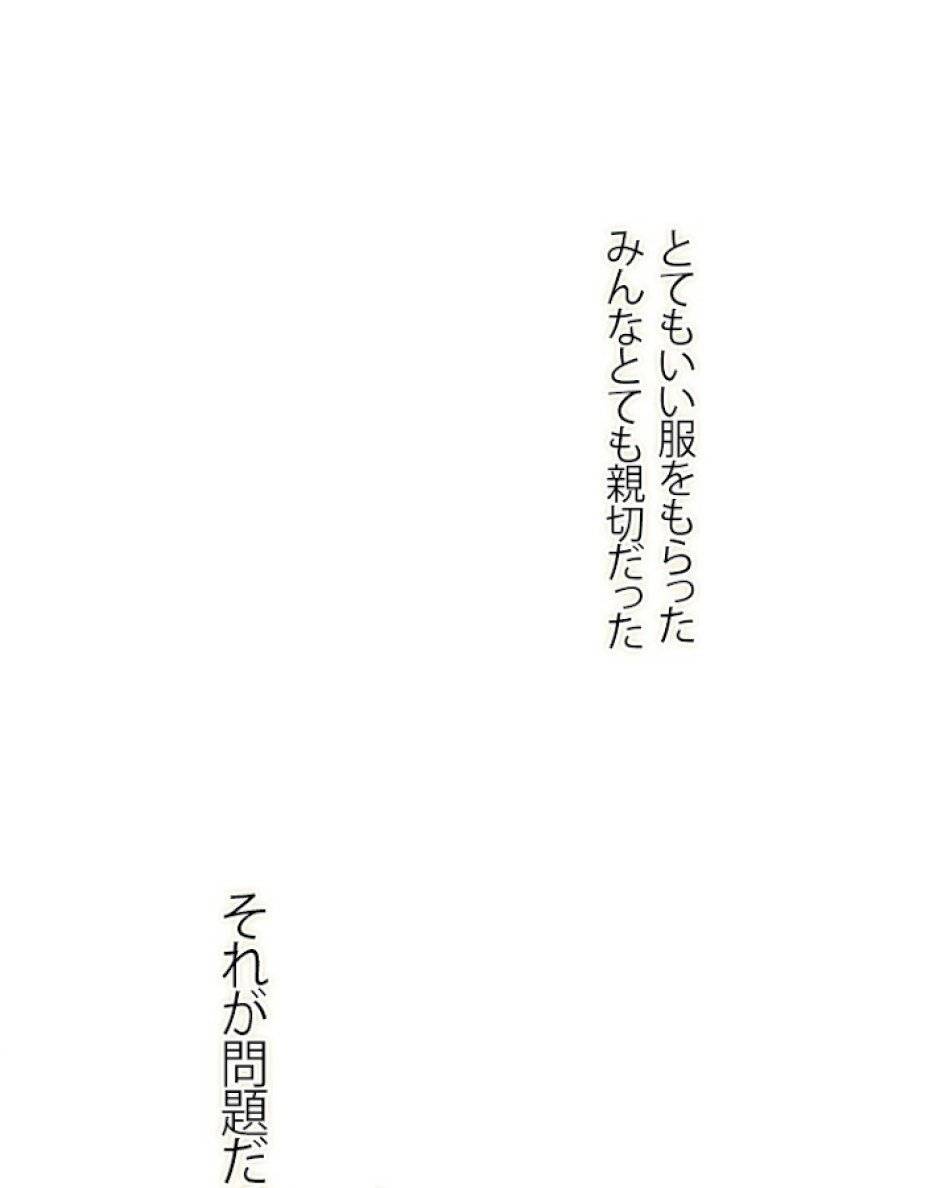 とてもいい服をもらった
みんなとても親切だった
それが問題だ